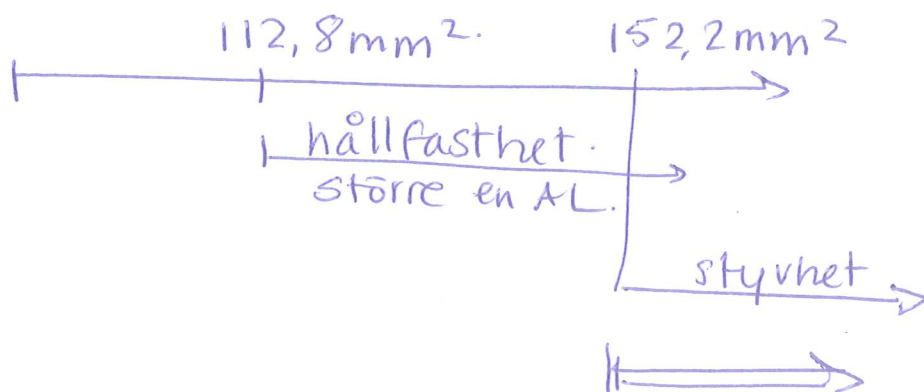 112,8mm². 152,2mm²
hållfasthet.
större en AL.
styvhet